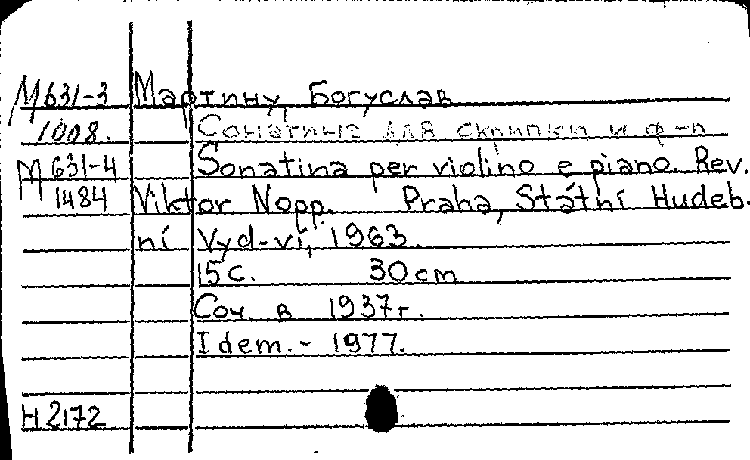 М631-3 Мартину, Богуслав
1008. Сонатина для скрипки и ф-п
М631-4 Sonatina per violino e piano. Rev.
1484 Viktor Nopp. Praha, Státhí Hudeb.
ní Vyd-ví, 1963.
15 с. 30 cm
Соч. в 1937г.
Idem.- 1977.
Н 2172